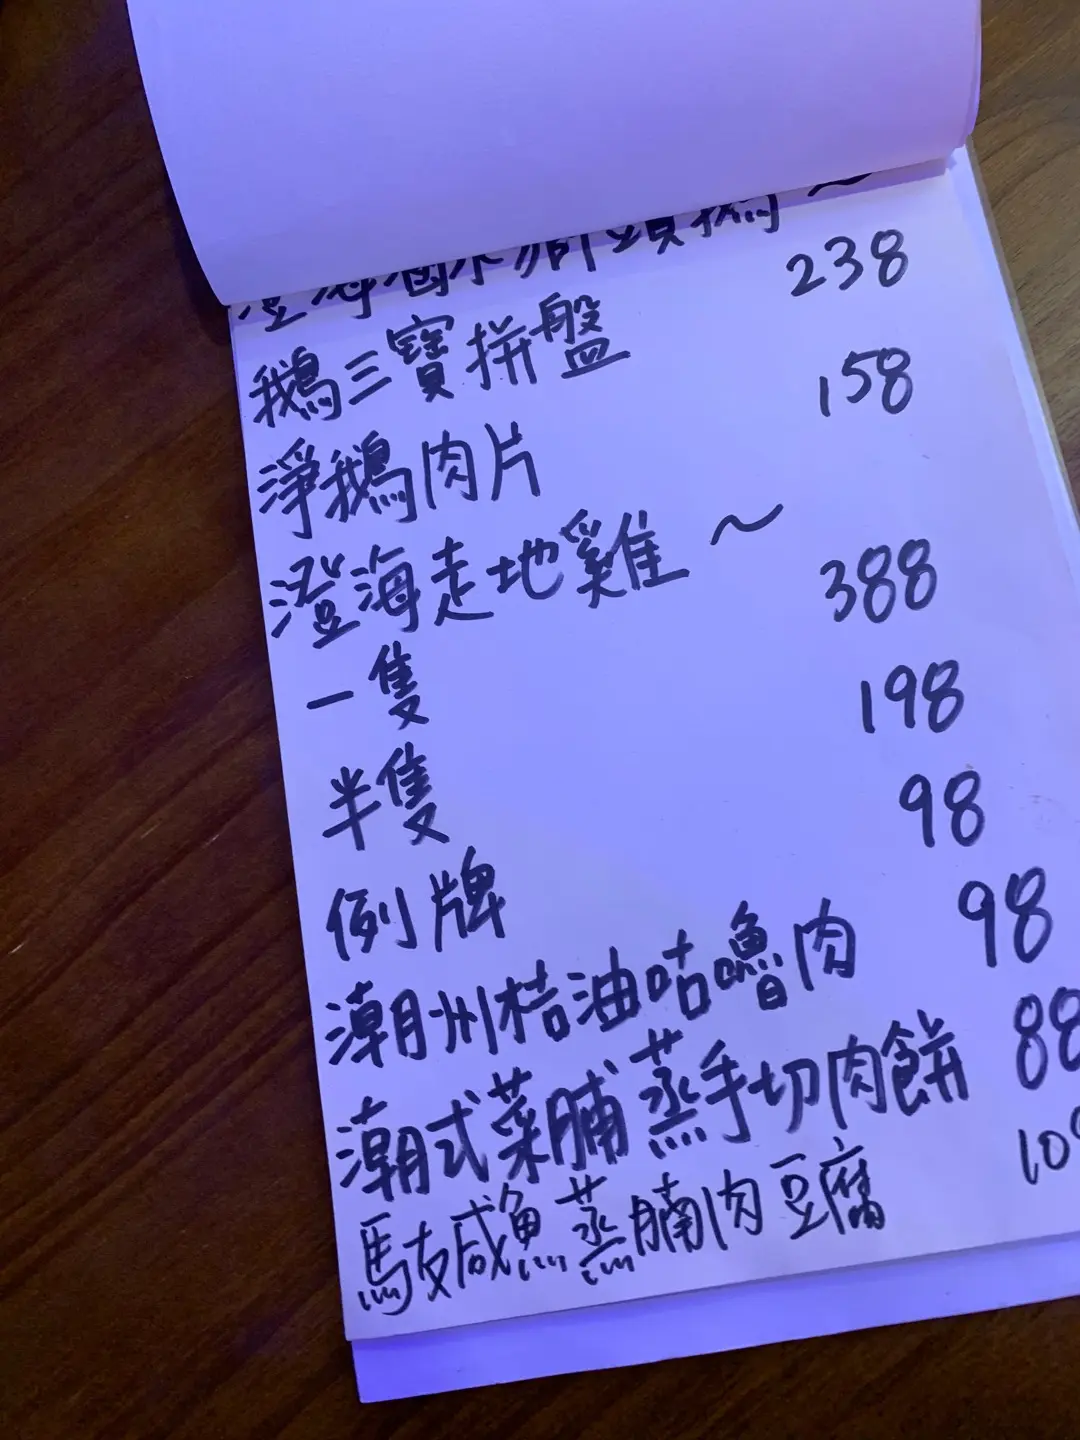 澄海滷水獅頭鵝 ～
鵝三寶拼盤 238
淨鵝肉片 158
澄海走地雞 ～
一隻 388
半隻 198
例牌 98
潮州桔油咕嚕肉 98
潮式菜脯蒸手切肉餅 88
馬友鹹魚蒸腩肉豆腐